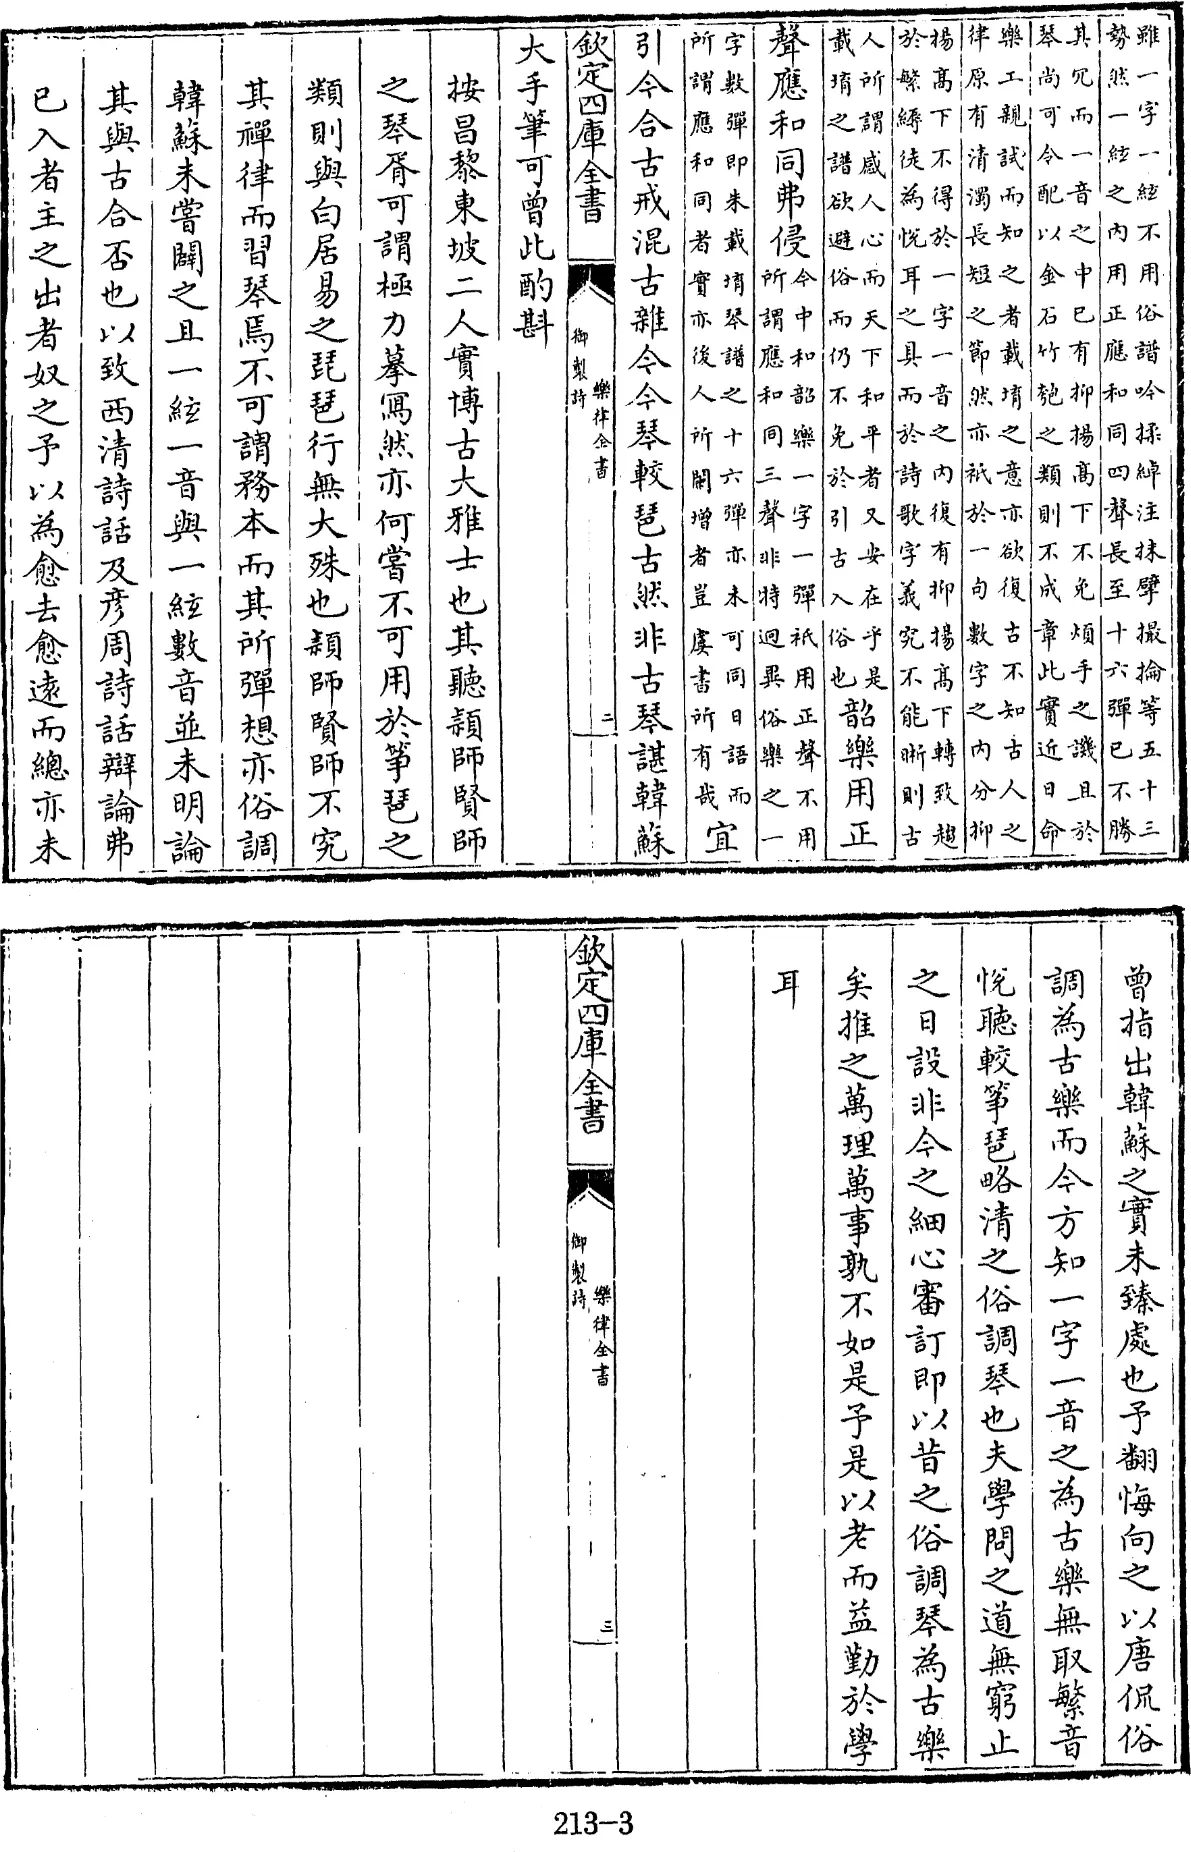 雖一字一絃不用俗譜吟揉綽注抹擘撮掄等五十三
勢然一絃之内用正應和同四聲長至十六彈已不勝
其冗而一音之中已有抑揚高下不免煩手之譏且於
琴尚可令配以金石竹匏之類則不成章此實近日命
樂工親試而知之者載堉之意亦欲復古不知古人之
律原有清濁長短之節然亦祗於一句數字之内分抑
揚高下不得於一字一音之内復有抑揚高下轉致趨
於繁縟徒為悦耳之具而於詩歌字義究不能晰則古
人所謂感人心而天下和平者又安在乎是
載堉之譜欲避俗而仍不免於引古入俗也
韶樂用正
聲應和同弗侵
今中和韶樂一字一彈祗用正聲不用
所謂應和同三聲非特迥異俗樂之一
字數彈即朱載堉琴譜之十六彈亦未可同日語而
所謂應和同者實亦後人所闢增者豈虞書所有哉
宜
引今合古戒混古雜今今琴較琶古然非古琴諶韓蘇
欽定四庫全書
樂律全書
御製詩
二
大手筆可曾此酌斟
按昌黎東坡二人實博古大雅士也其聽穎師賢師
之琴胥可謂極力摹寫然亦何嘗不可用於箏琶之
類則與白居易之琵琶行無大殊也穎師賢師不究
其禪律而習琴焉不可謂務本而其所彈想亦俗調
韓蘇未嘗闢之且一絃一音與一絃數音並未明論
其與古合否也以致西清詩話及彥周詩話辯論弗
已入者主之出者奴之予以為愈去愈遠而總亦未
曾指出韓蘇之實未臻處也予翻悔向之以唐侃俗
調為古樂而今方知一字一音之為古樂無取繁音
悅聽較箏琶略清之俗調琴也夫學問之道無窮止
之日設非今之細心審訂即以昔之俗調琴為古樂
矣推之萬理萬事孰不如是予是以老而益勤於學
耳
欽定四庫全書
樂律全書
御製詩
三
213-3